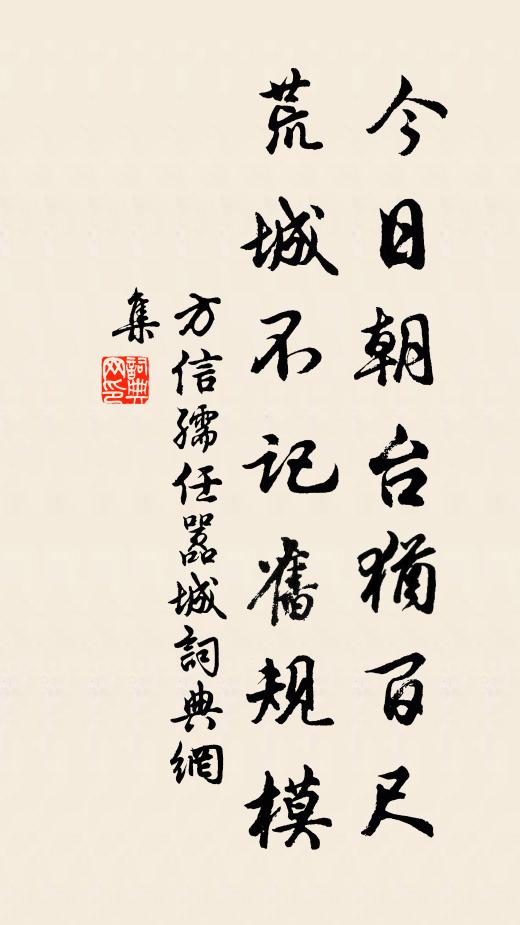 今日朝台猶百尺
荒城不记舊规模
方信孺任嚣城詞典網
集
詞典
网印